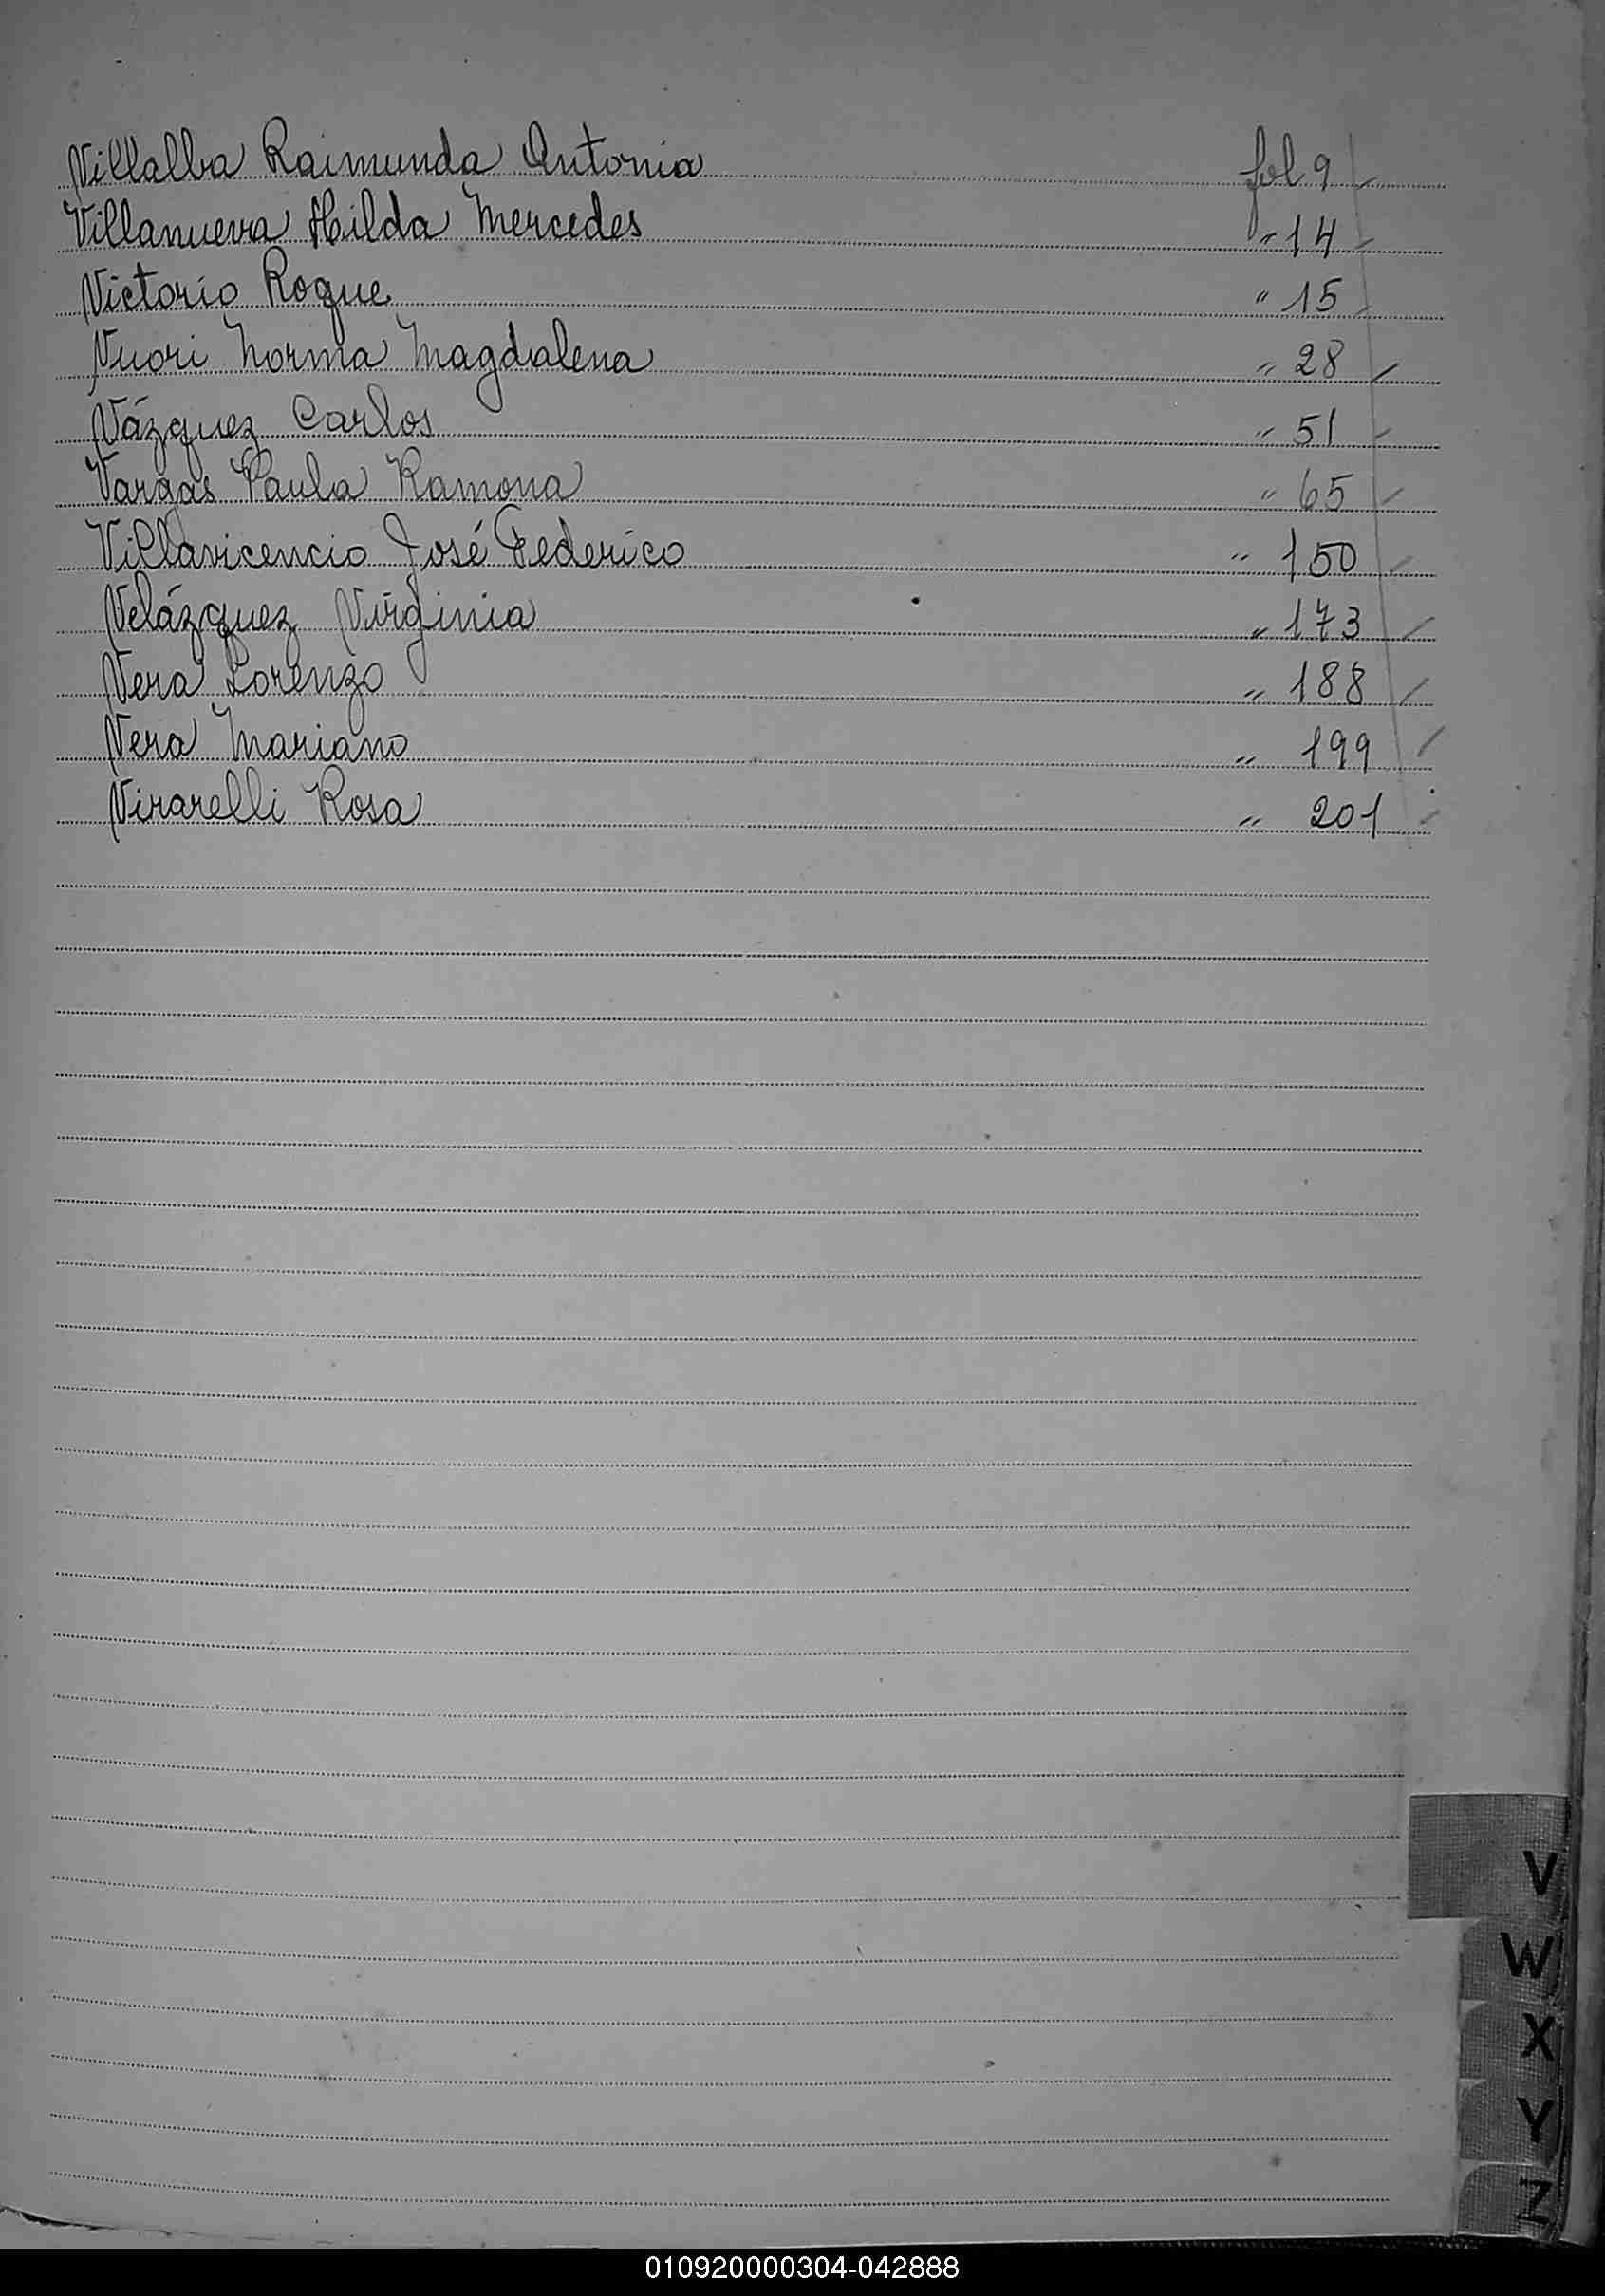 Villalba Raimunda Antonia fol 9
Villanueva Hilda Mercedes " 14
Victorio Roque " 15
Vuori Norma Magdalena " 28
Vázquez Carlos " 51
Vargas Paula Ramona " 65
Villavicencio José Federico " 150
Velázquez Virginia " 173
Vera Lorenzo " 188
Vera Mariano " 199
Virarelli Rosa " 201
V
W
X
Y
Z
010920000304-042888